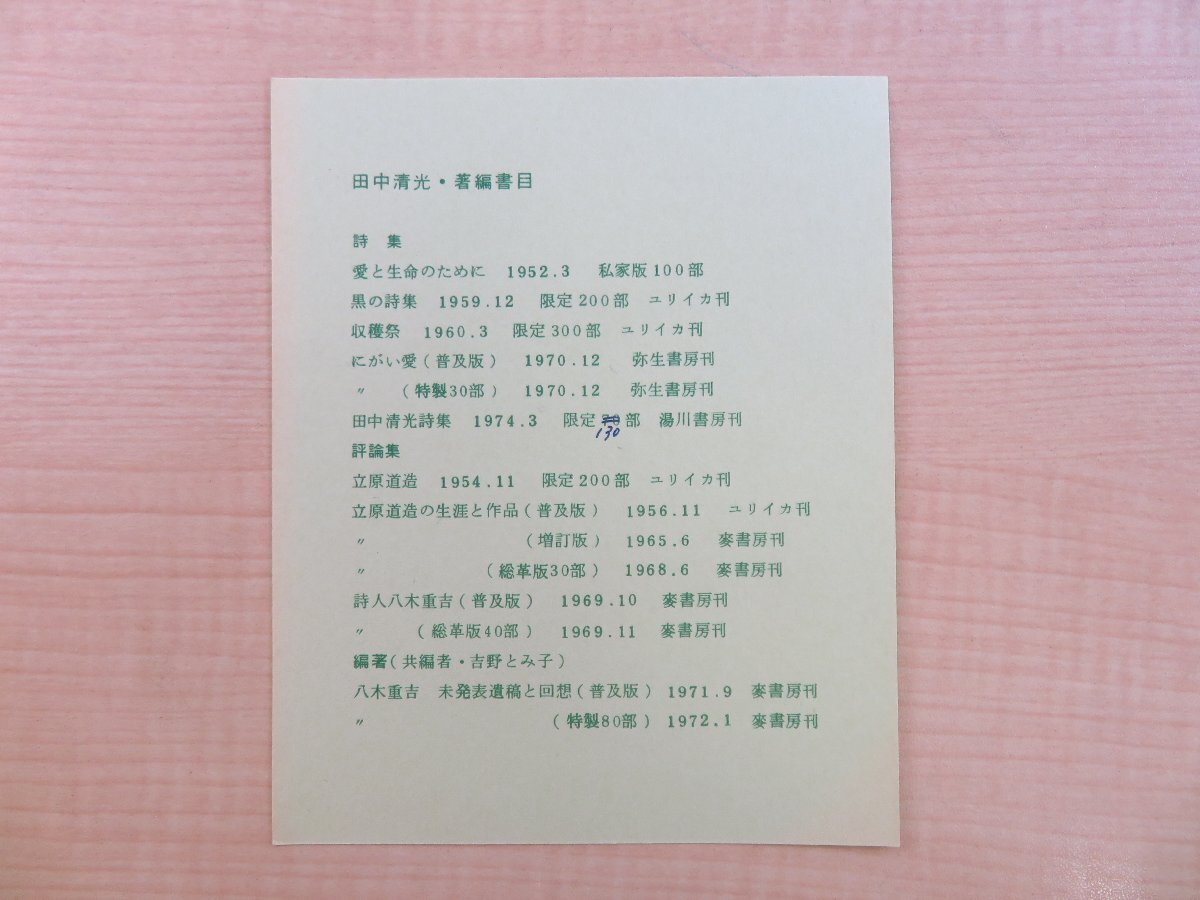 田中清光・著編書目
詩 集
愛と生命のために 1952.3 私家版100部
黒の詩集 1959.12 限定200部 ユリイカ刊
収穫祭 1960.3 限定300部 ユリイカ刊
にがい愛(普及版) 1970.12 弥生書房刊
〃 (特製30部) 1970.12 弥生書房刊
田中清光詩集 1974.3 限定 部 湯川書房刊
130
評論集
立原道造 1954.11 限定200部 ユリイカ刊
立原道造の生涯と作品(普及版) 1956.11 ユリイカ刊
〃 (増訂版) 1965.6 麥書房刊
〃 (総革版30部) 1968.6 麥書房刊
詩人八木重吉(普及版) 1969.10 麥書房刊
〃 (総革版40部) 1969.11 麥書房刊
編著(共編者・吉野とみ子)
八木重吉 未発表遺稿と回想(普及版) 1971.9 麥書房刊
〃 (特製80部) 1972.1 麥書房刊